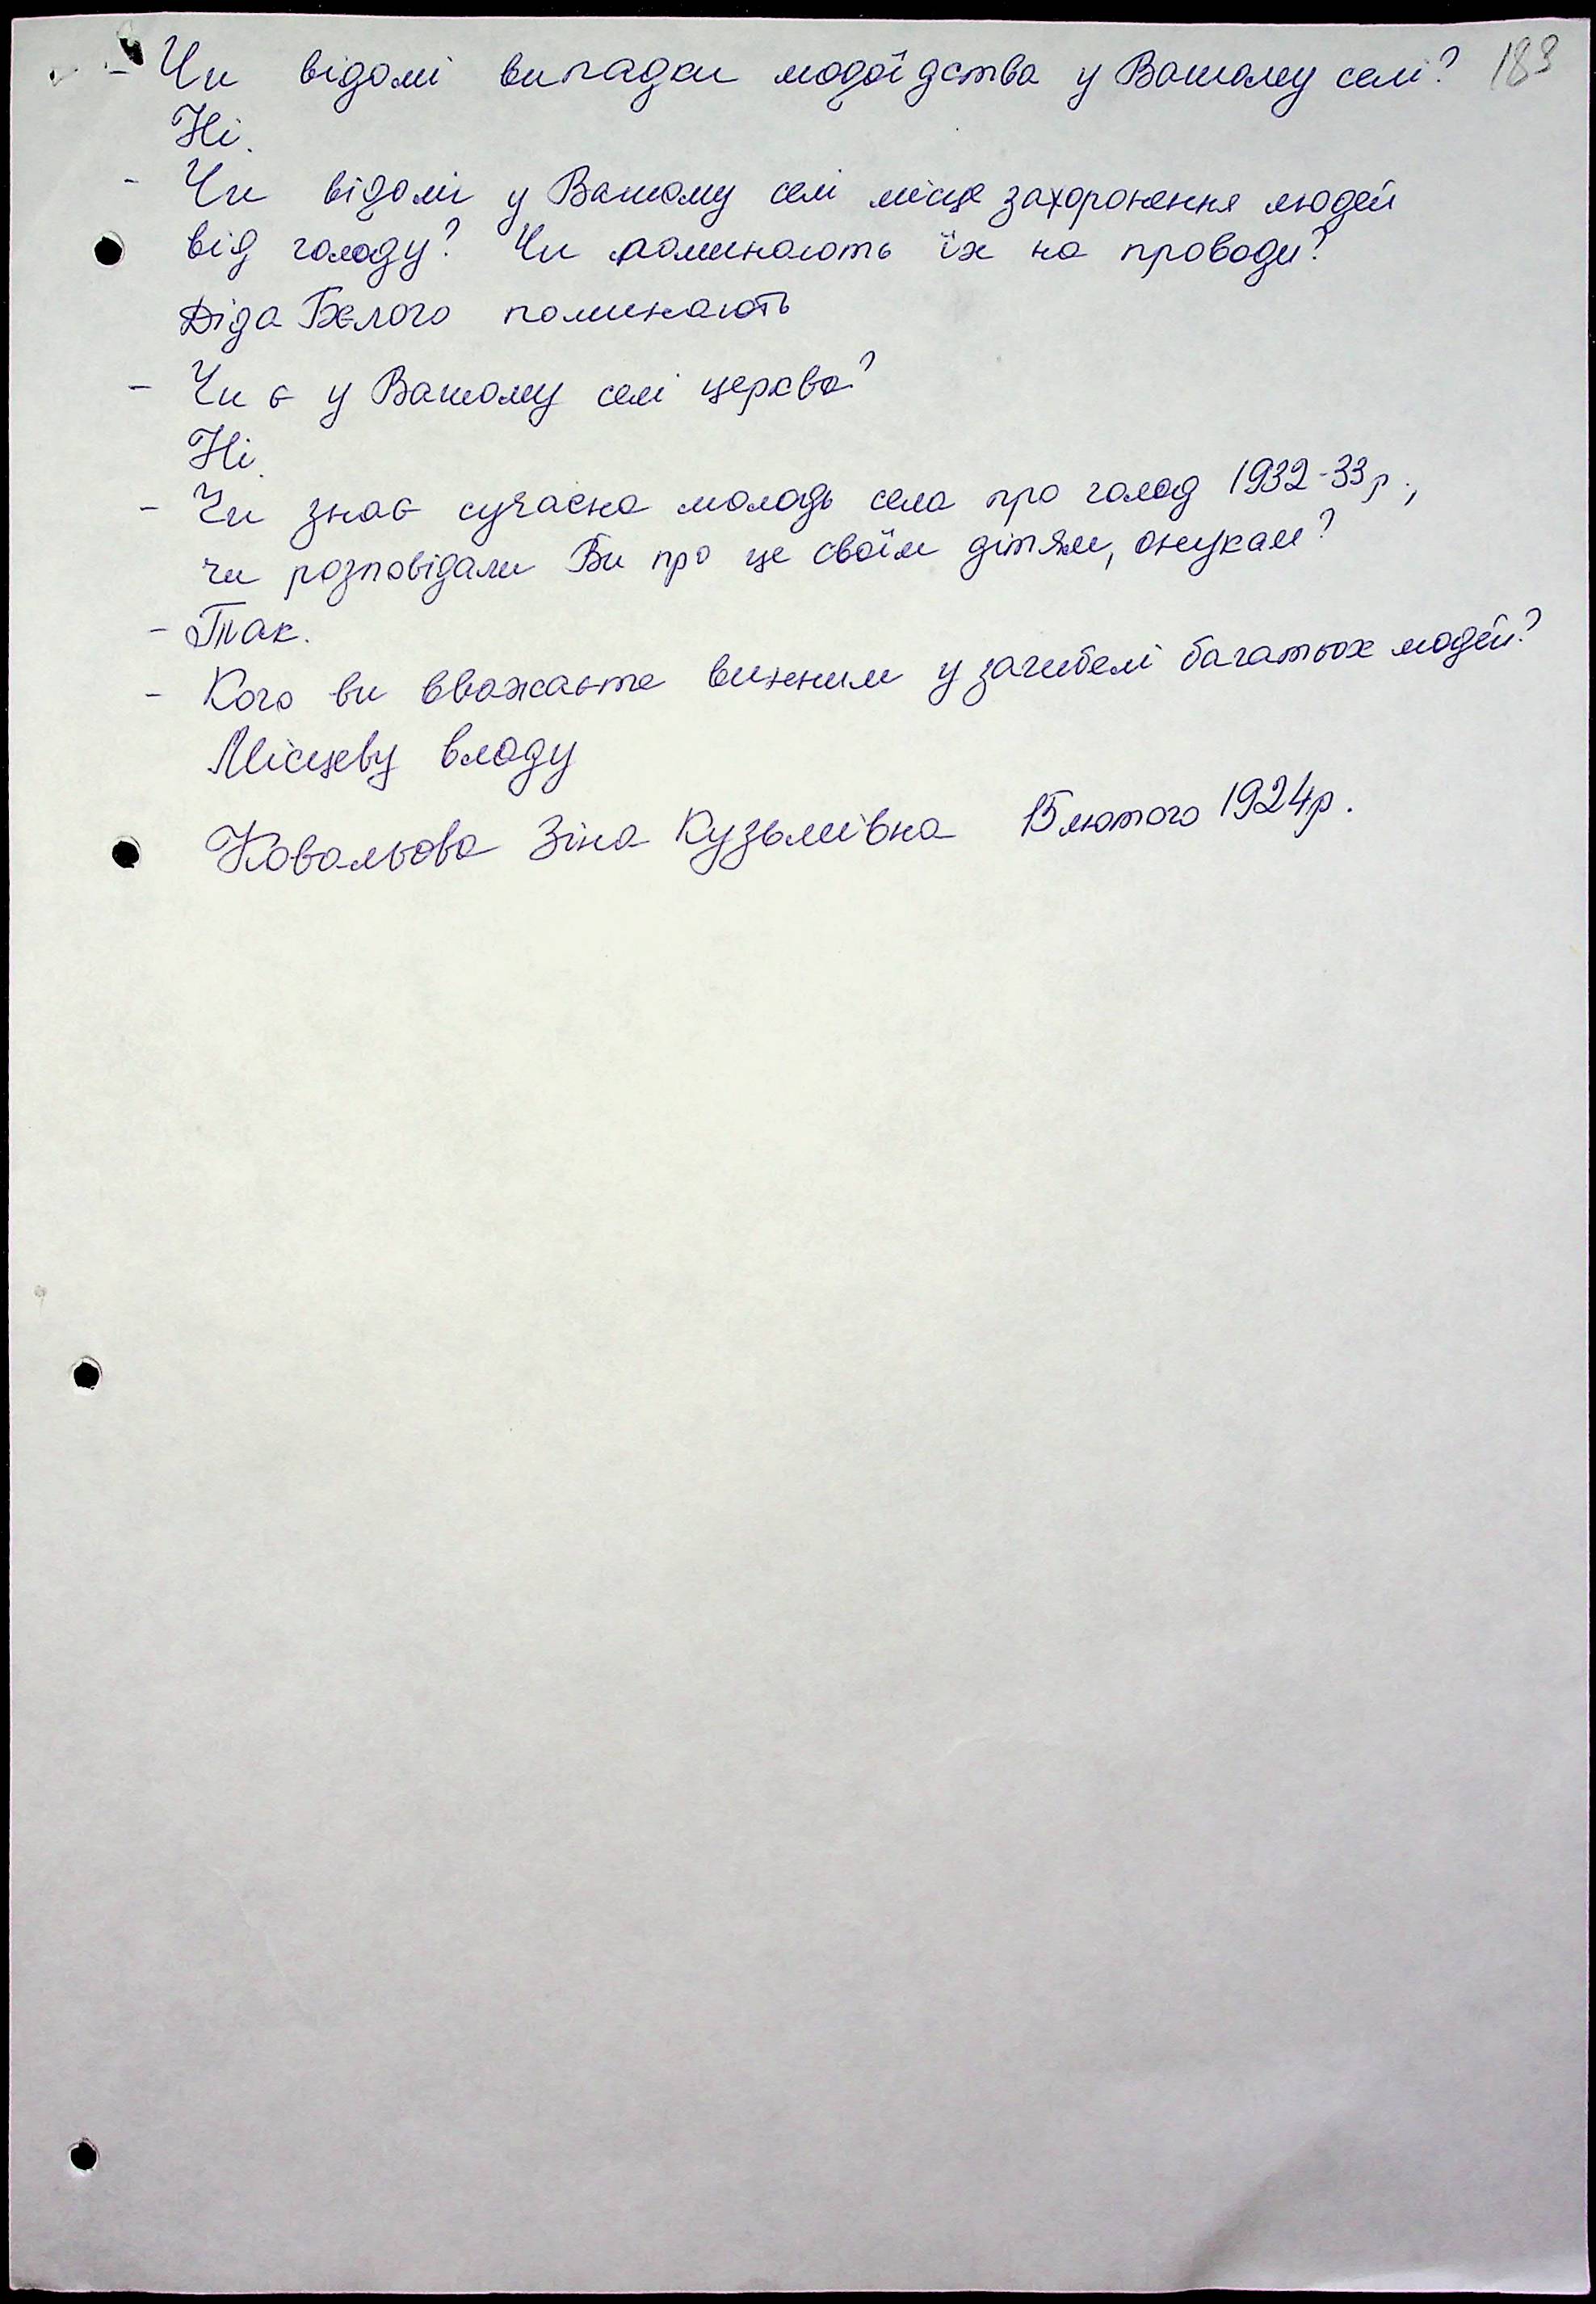 183
- Чи відомі випадки людоїдства у Вашому селі?
Ні.
- Чи відомі у Вашому селі місце захоронення людей
від голоду? Чи поминають їх на проводи?
Діда Бєлого поминають
- Чи є у Вашому селі церква?
Ні.
- Чи знає сучасна молодь села про голод 1932-33р.,
чи розповідали Ви про це своїм дітям, онукам?
- Так.
- Кого ви вважаєте винним у загибелі багатьох людей?
Місцеву владу
Ковальова Зіна Кузьмівна 15 лютого 1924р.